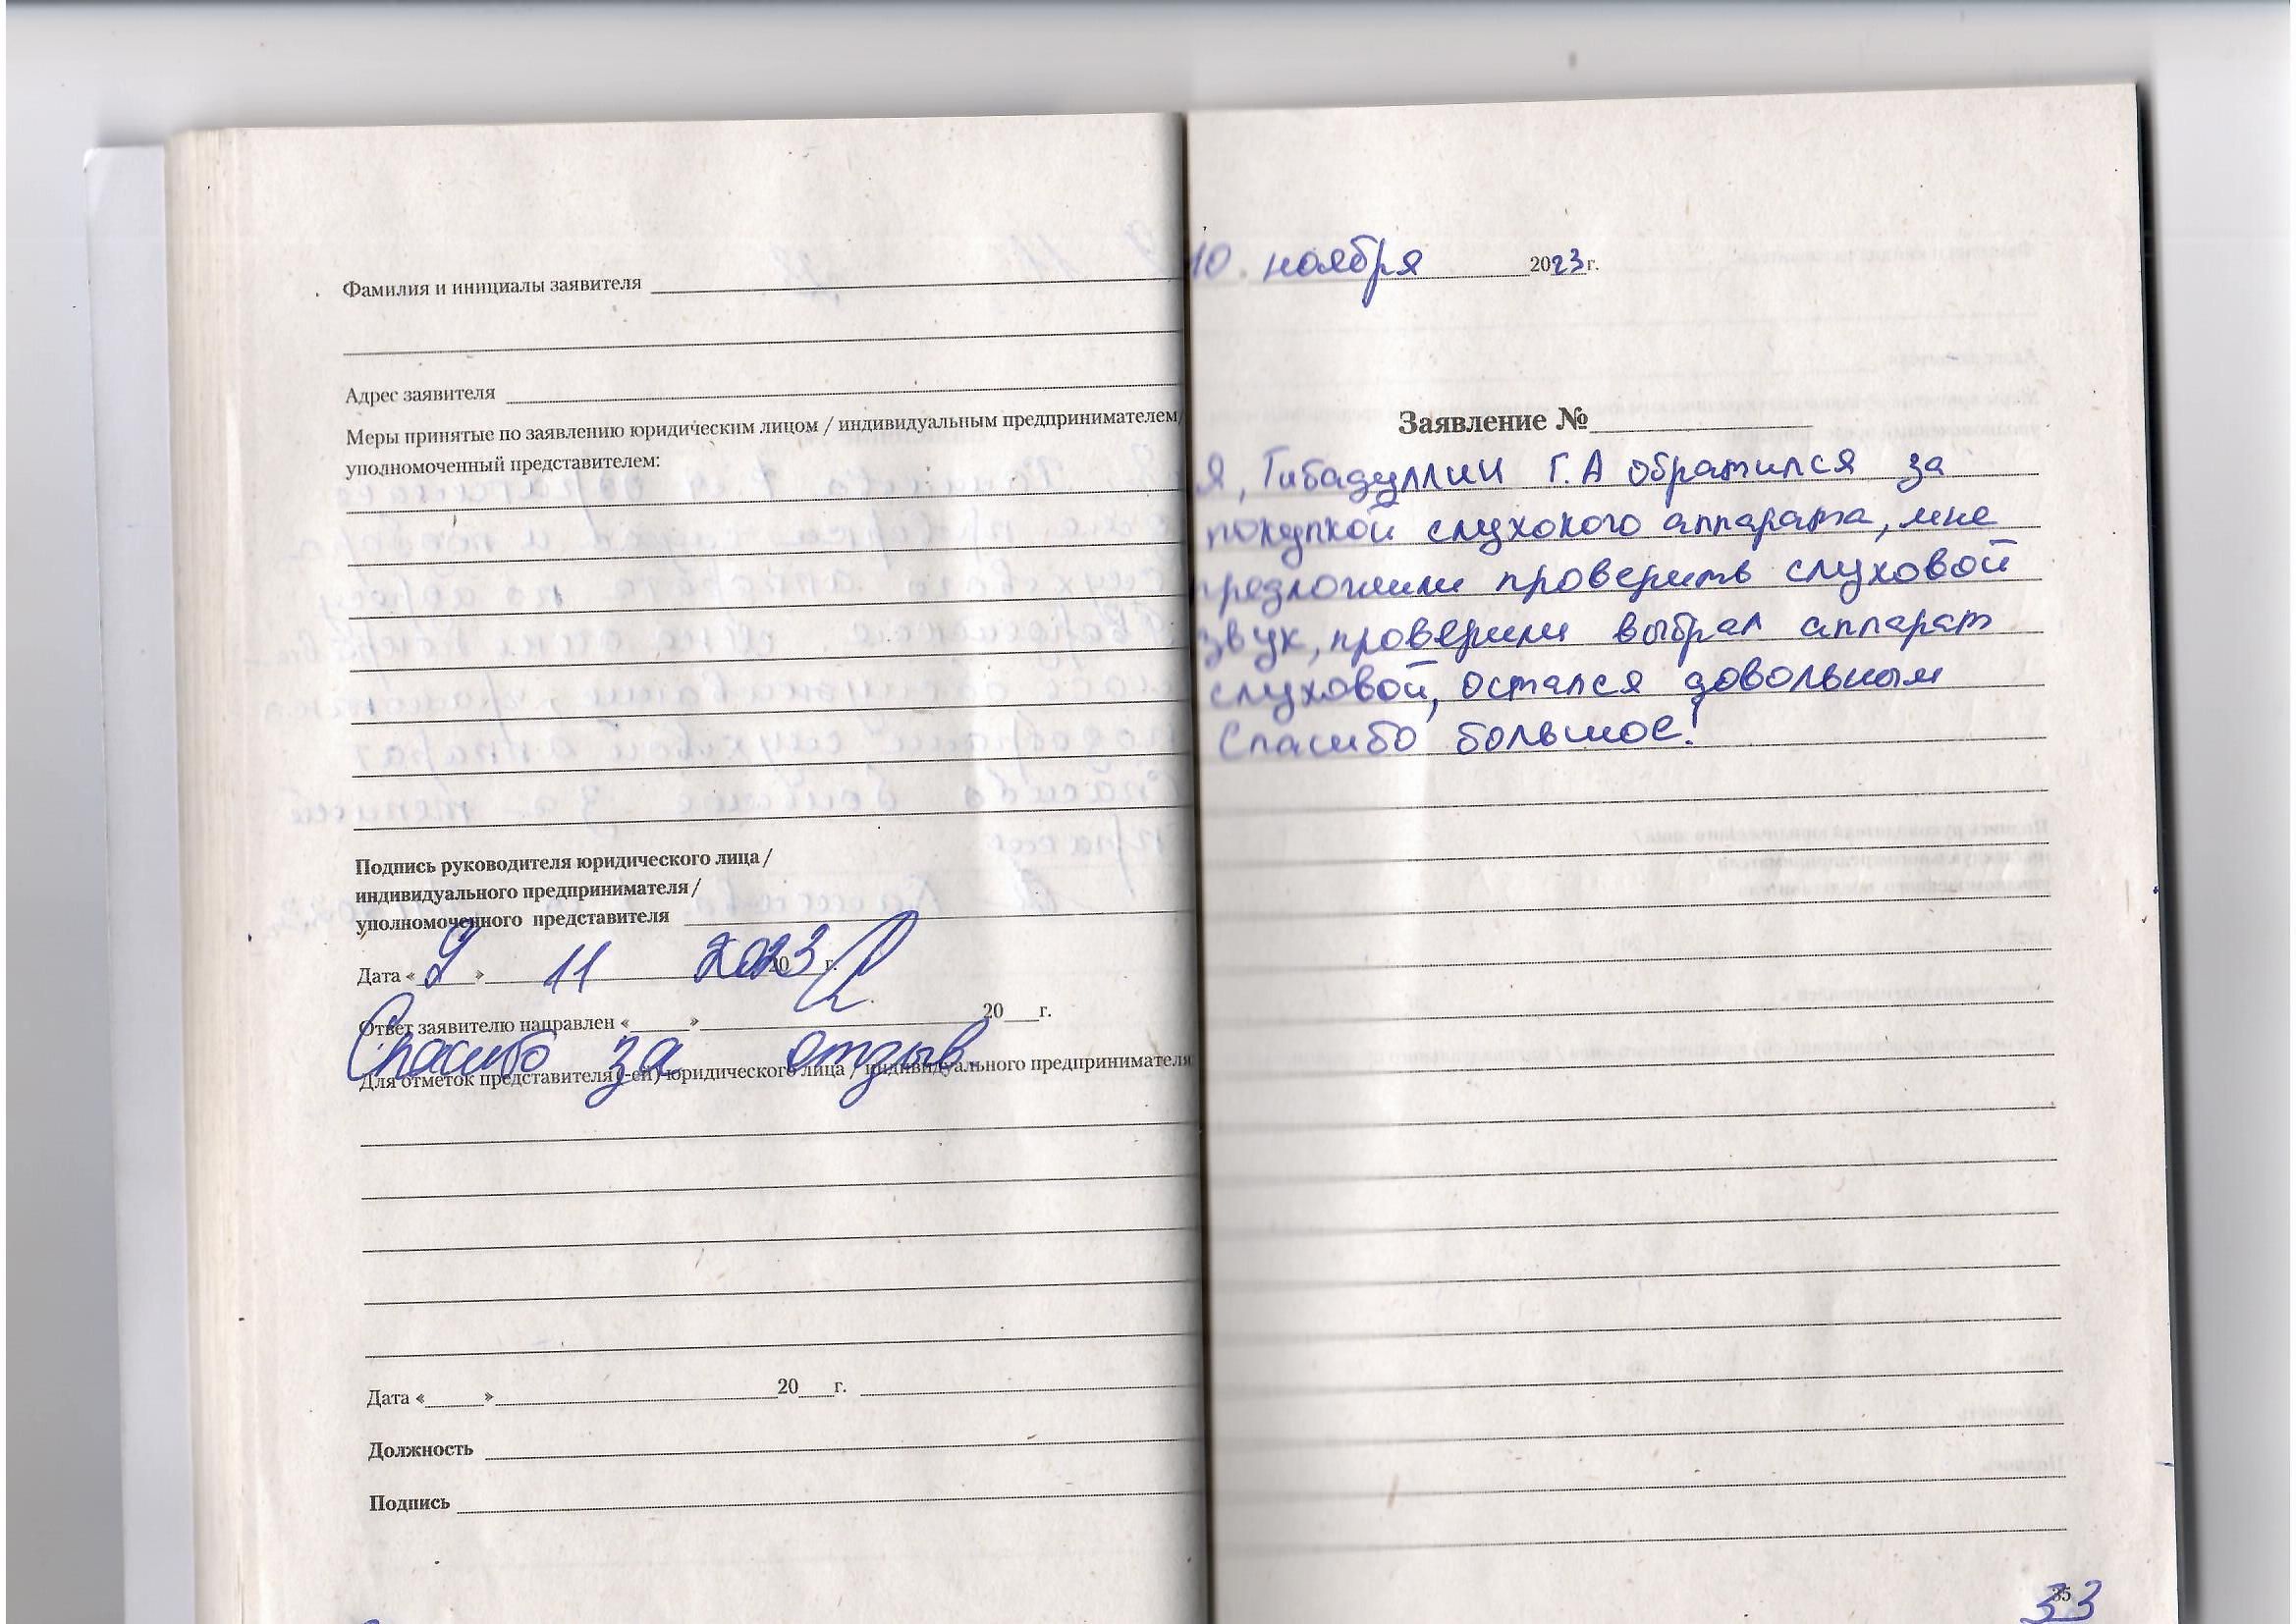 Фамилия и инициалы заявителя
Адрес заявителя
Меры принятые по заявлению юридическим лицом / индивидуальным предпринимателем/
уполномоченный представителем:
Подпись руководителя юридического лица /
индивидуального предпринимателя /
уполномоченного представителя
Дата « 9 » 11 2023 20 г.
Ответ заявителю направлен « » 20 г.
Спасибо за отзыв.
Для отметок представителя (-ей) юридического лица / индивидуального предпринимателя
Дата « » 20 г.
Должность
Подпись
10 ноября 2023 г.
Заявление №
Я, Гибадуллин Г.А обратился за
покупкой слухокого аппарата, мне
предложили проверить слуховой
звук, проверили выбрал аппарат
слуховой, остался довольным
Спасибо большое!
35
33